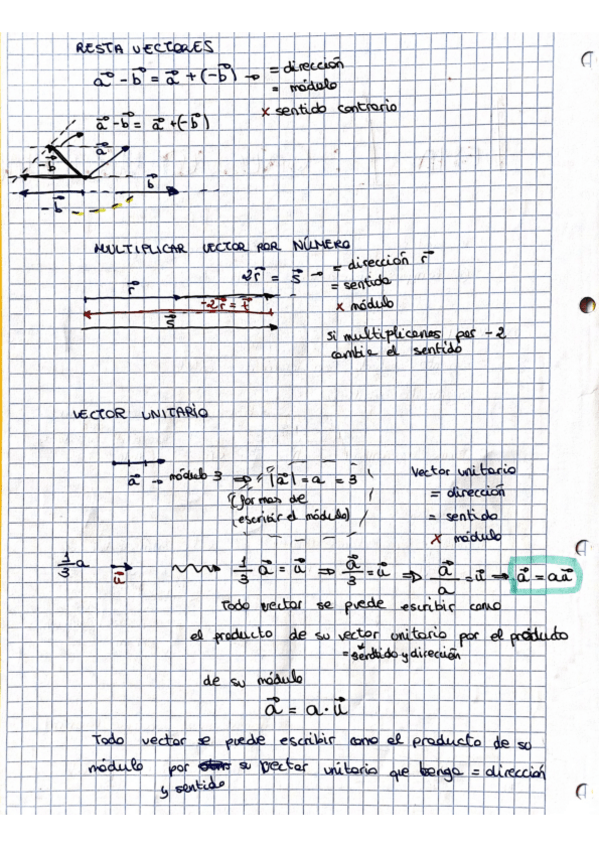 RESTA VECTORES
a⃗ - b⃗ = a⃗ + (-b⃗) → = dirección
= módulo
x sentido contrario
a⃗ - b⃗ = a⃗ + (-b⃗)
a⃗
-b⃗
b⃗
-b⃗
MULTIPLICAR VECTOR POR NÚMERO
2r⃗ = s⃗ → = dirección r⃗
= sentido
x módulo
r⃗
-2r⃗ = t⃗
s⃗
si multiplicamos por -2
cambia el sentido
VECTOR UNITARIO
a⃗ → módulo 3 ⇒ |a⃗| = a = 3
(formas de
escribir el módulo)
Vector unitario
= dirección
= sentido
x módulo
1/3 a u⃗ 1/3 a⃗ = u⃗ ⇒ a⃗/3 = u⃗ ⇒ a⃗/a = u⃗ → a⃗ = au⃗
Todo vector se puede escribir como
el producto de su vector unitario por el producto
= sentido y dirección
de su módulo
a⃗ = a · u⃗
Todo vector se puede escribir como el producto de su
módulo por su vector unitario que tenga = dirección
y sentido